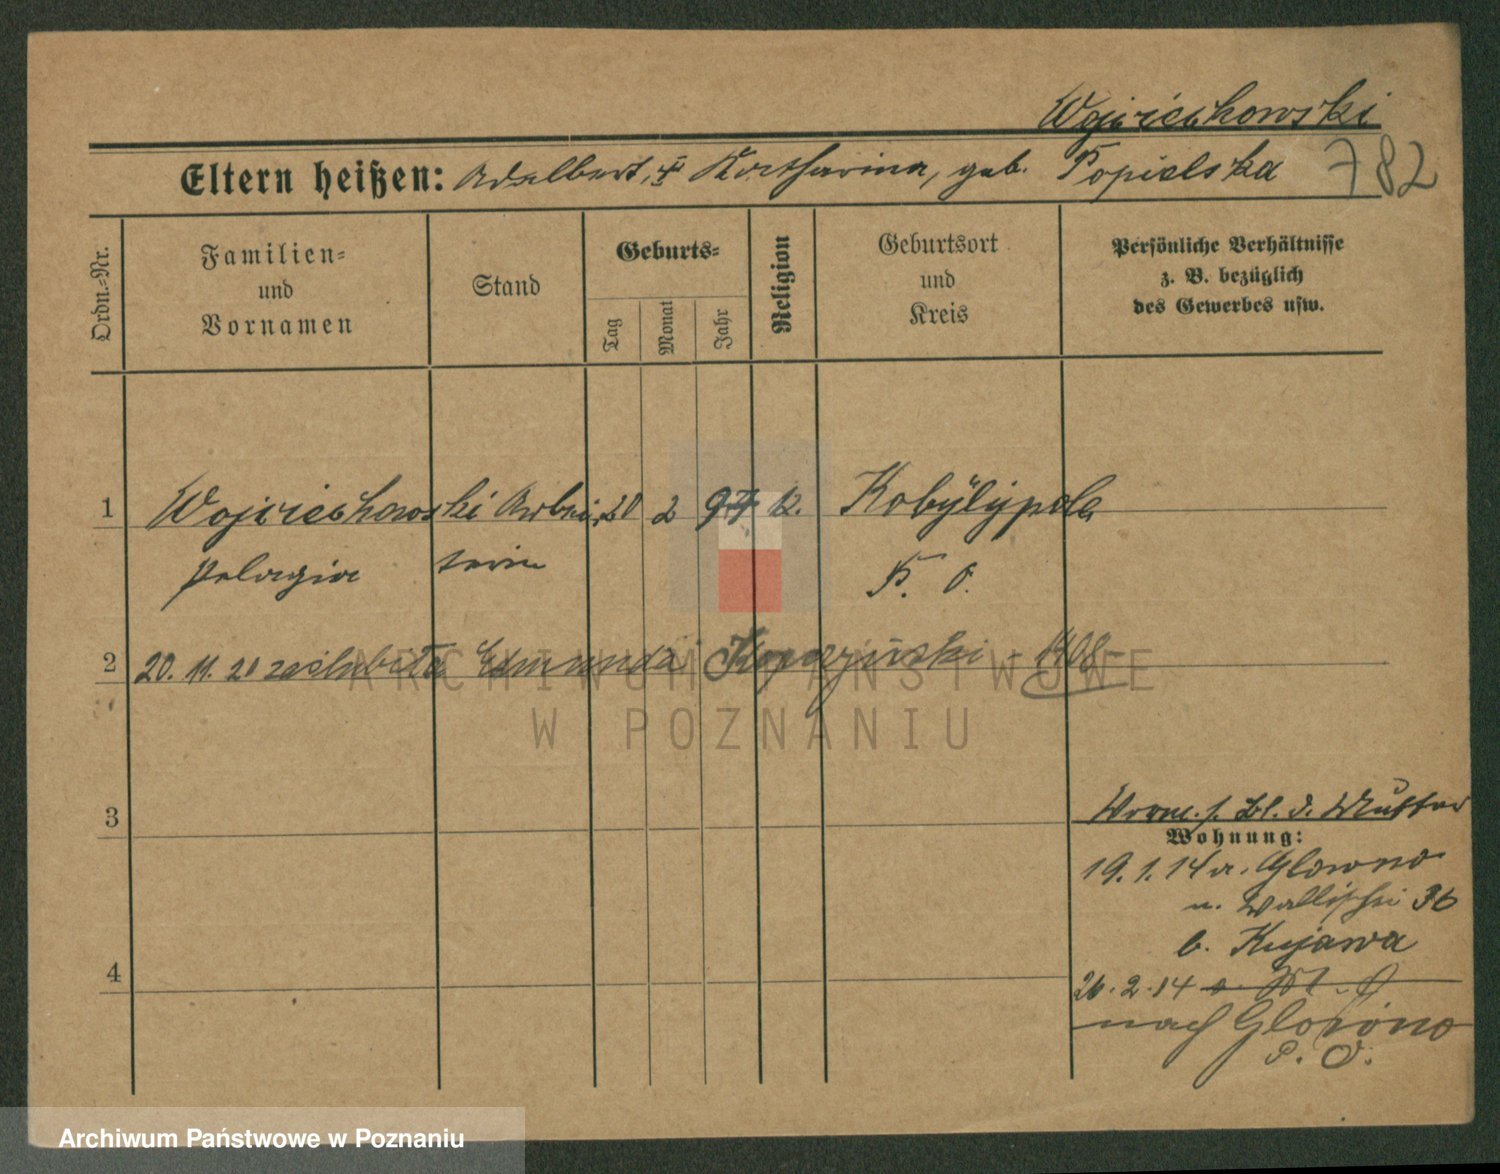 Wojciechowski
Eltern heißen: Adalbert, u. Katharina, geb. Popielska 782
Ordn.-Nr.
Familien- und Vornamen
Stand
Geburts-
Tag Monat Jahr
Religion
Geburtsort und Kreis
Persönliche Verhältnisse z. B. bezüglich des Gewerbes usw.
1 Wojciechowski Arbei- 20 2 97 k. Kobylepole
Pelagia terin P. O.
2 20. 11. 20 zaślubiła Edmunda 1908
3
Wohnung:
19. 1. 14 a. Glowno
n. Wallischei 36
b. Kujawa
4
26. 2. 14
nach Glowno
P. O.
ARCHIWUM PAŃSTWOWE
W POZNANIU
Archiwum Państwowe w Poznaniu